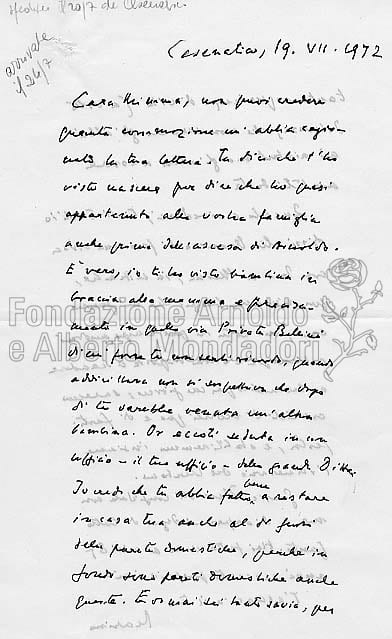 spedita il 20/7 da Cesenatico
arrivata
il 26/7
Cesenatico, 19. VII. 1972
Cara Mimma, non puoi credere
quanta commozione mi abbia cagio-
nato la tua lettera. Tu dici che t'ho
visto nascere per dire che ho quasi
appartenuto alla vostra famiglia
anche prima dell'ascesa di Arnoldo.
È vero, io ti ho visto bambina in
braccia alla mamma e precisa-
mente in quella via Privata Bellini
di cui forse tu non serbi ricordo, quando
addirittura non si sospettava che dopo
di te sarebbe venuta un'altra
bambina. Or eccoti seduta in un
ufficio - il tuo ufficio - della grande Ditta.
Io credo che tu abbia fatto bene a restare
in casa tua anche al di fuori
delle pareti domestiche, perché in
fondo sono pareti domestiche anche
queste. E ormai sei tanto savia, per
Fondazione Arnoldo
e Alberto Mondadori